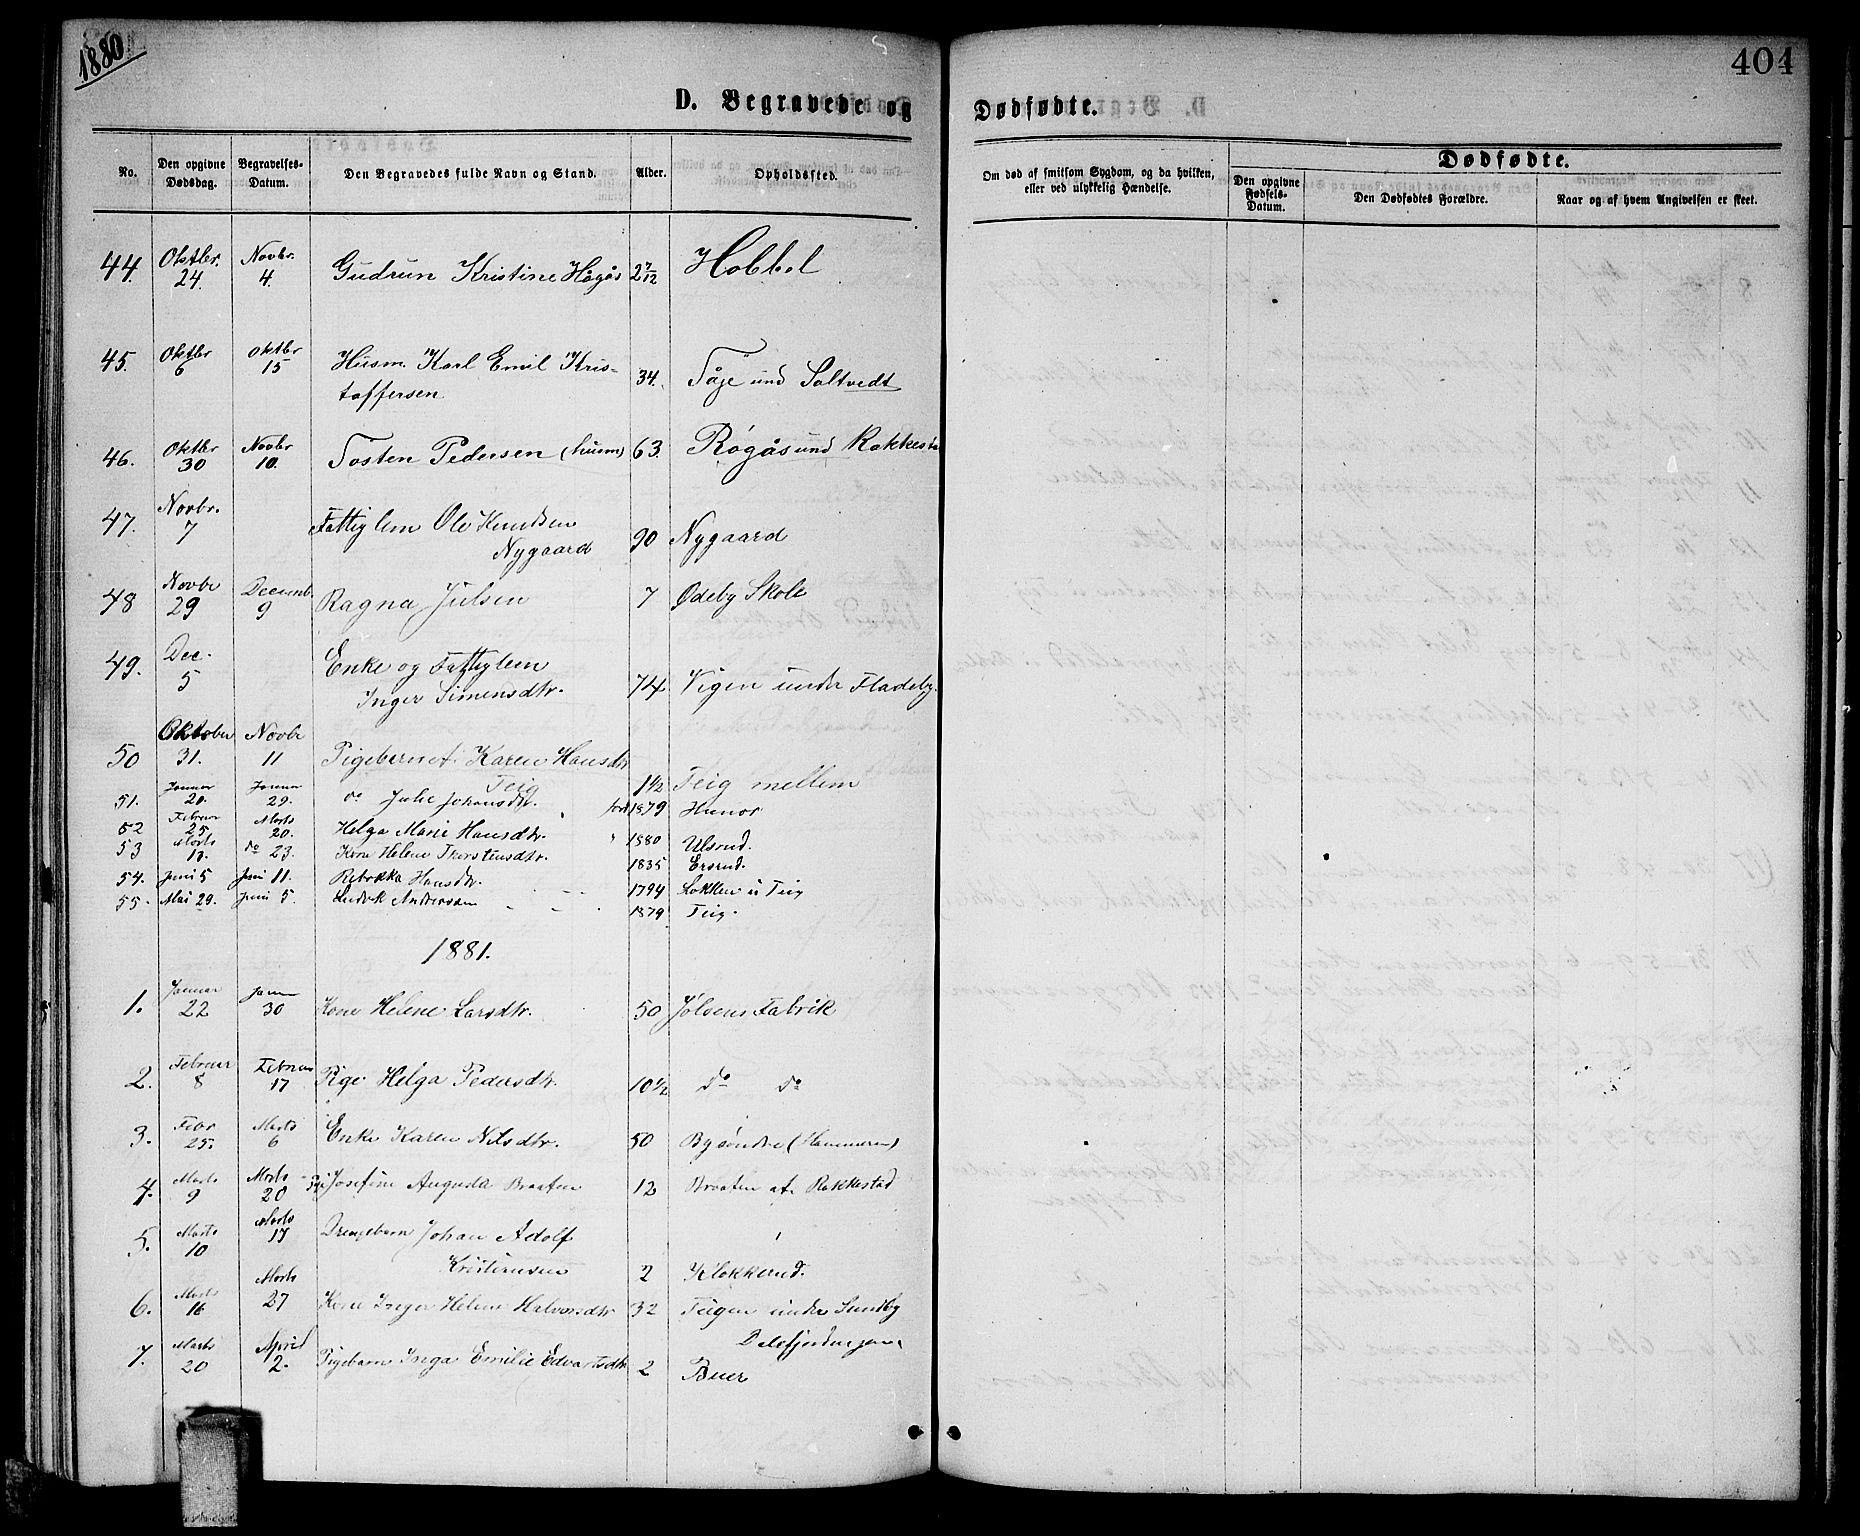 1880
404
D. Begravede og Dødfødte.
No. Den opgivne Dødsdag. Begravelses-Datum. Den Begravedes fulde Navn og Stand. Alder. Opholdssted. Om død af smitsom Sygdom, og da hvilken, eller ved ulykkelig Hændelse. Dødfødte. Den opgivne Fødsels-Datum. Den Dødfødtes Forældre. Naar og af hvem Angivelsen er skeet.
44. Oktbr. 24. Novbr. 4. Gudrun Kristine Hågås 2 7/12 Hobbel
45. Oktbr 6 Oktbr 15 Husm. Karl Emil Kris-
toffersen 34. Tåje und Soltvedt
46. Oktbr 30 Novbr 10. Tosten Pedersen (husm) 63. Røgås und Rakkesta
47. Novbr. 7 Fattiglem Ole Knudsen
Nygaard 90 Nygaard
48 Novbr 29 Decemb. 9 Ragna Julsen 7 Ødeby Skole
49. Dec. 5 Enke og Fattiglem
Inger Simensdtr. 74 Vigen under Fladeby.
50 Oktober 31. Novbr 11 Pigebarnet Karen Hansdtr
Teig 1½ Teig mellem
51. Januar 20. Januar 29. do Julie Johansdtr. født 1879 Hunor
52 Februar 25 Marts 20. Helga Marie Hansdtr. " 1880 Ulsrud.
53 Marts 13. do 23. Kone Helene Thorstensdtr. 1835 Ersrud.
54. Juni 5 Juni 11. Rebekka Hansdtr. 1794 Løkken u Teig
55. Mai 29. Juni 5. Ludvk Anderssen 1879 Teig.
1881.
1. Januar 22 Janua 30 Kone Helene Larsdtr. 50 Jølsens Fabrik
2. Februar 8 Februa 17 Pige Helga Pedersdtr. 10½ do do
3. Febr 25. Marts 6 Enke Karen Nilsdtr. 50 By søndre (Hammeren)
4. Marts 9 Marts 20 Pi Josefine Augusta Braaten 12 Braaten af Rakkestad
5. Marts 10 Marts 17 Drengebarn Johan Adolf
Kristiansen 2 Klokkerud.
6. Marts 16 Marts 27 Kone Inger Helene Halvorsdtr 32 Teigen under Sundby
Dalefjerdingen
7. Marts 20 April 2. Pigebarn Inga Emilie Edvartsdtr 2 Buer